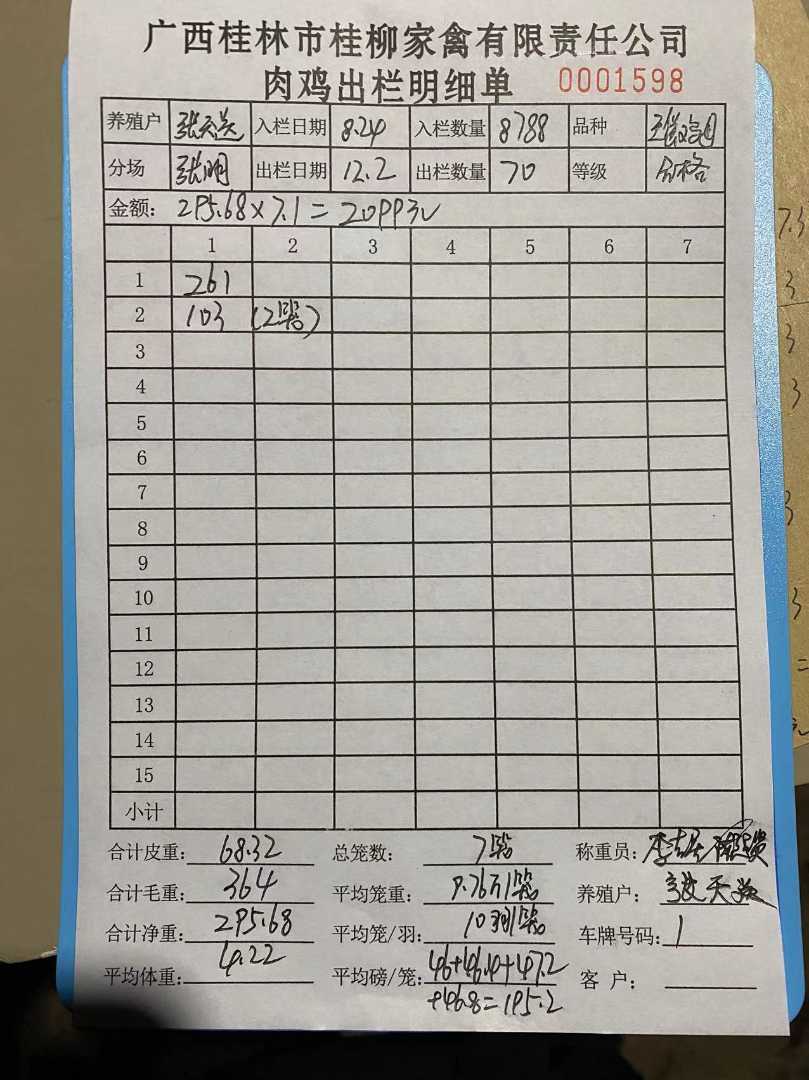 广西桂林市桂柳家禽有限责任公司
肉鸡出栏明细单 0001598
养殖户 入栏日期 8.24 入栏数量 8788 品种
分场 张明 出栏日期 12.2 出栏数量 70 等级 合格
金额: 295.68×7.1=2099元
1 2 3 4 5 6 7
1 261
2 103 (2笼)
3
4
5
6
7
8
9
10
11
12
13
14
15
小计
合计皮重: 68.32 总笼数: 7笼 称重员:
合计毛重: 364 平均笼重: 9.76斤/笼 养殖户:
合计净重: 295.68 平均笼/羽: 10羽/笼 车牌号码: 1
平均体重: 4.22 平均磅/笼: 46+46.4+47.2
+46.8=195.2 客 户:
7.3
3
3
3
3
3
=
元